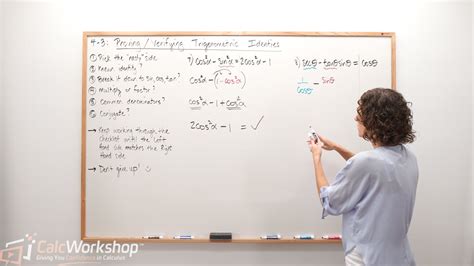 4-3: Proving / Verifying Trigonometric Identities
① Pick the "meaty" side
② Known identity?
③ Break it down to sin, cos, tan?
④ Multiply or factor?
⑤ Common denominators?
⑥ Conjugate?
→ Keep working through the
checklist until the Left
hand side matches the Right
hand side.
→ Don't give up! ☺
7) cos²α - sin²α = 2cos²α - 1
cos²α - (1 - cos²α)
cos²α - 1 + cos²α
2cos²α - 1 = ✓
8) secθ - tanθ sinθ = cosθ
1/cosθ - sinθ
CalcWorkshop™
Giving You Confidence in Calculus